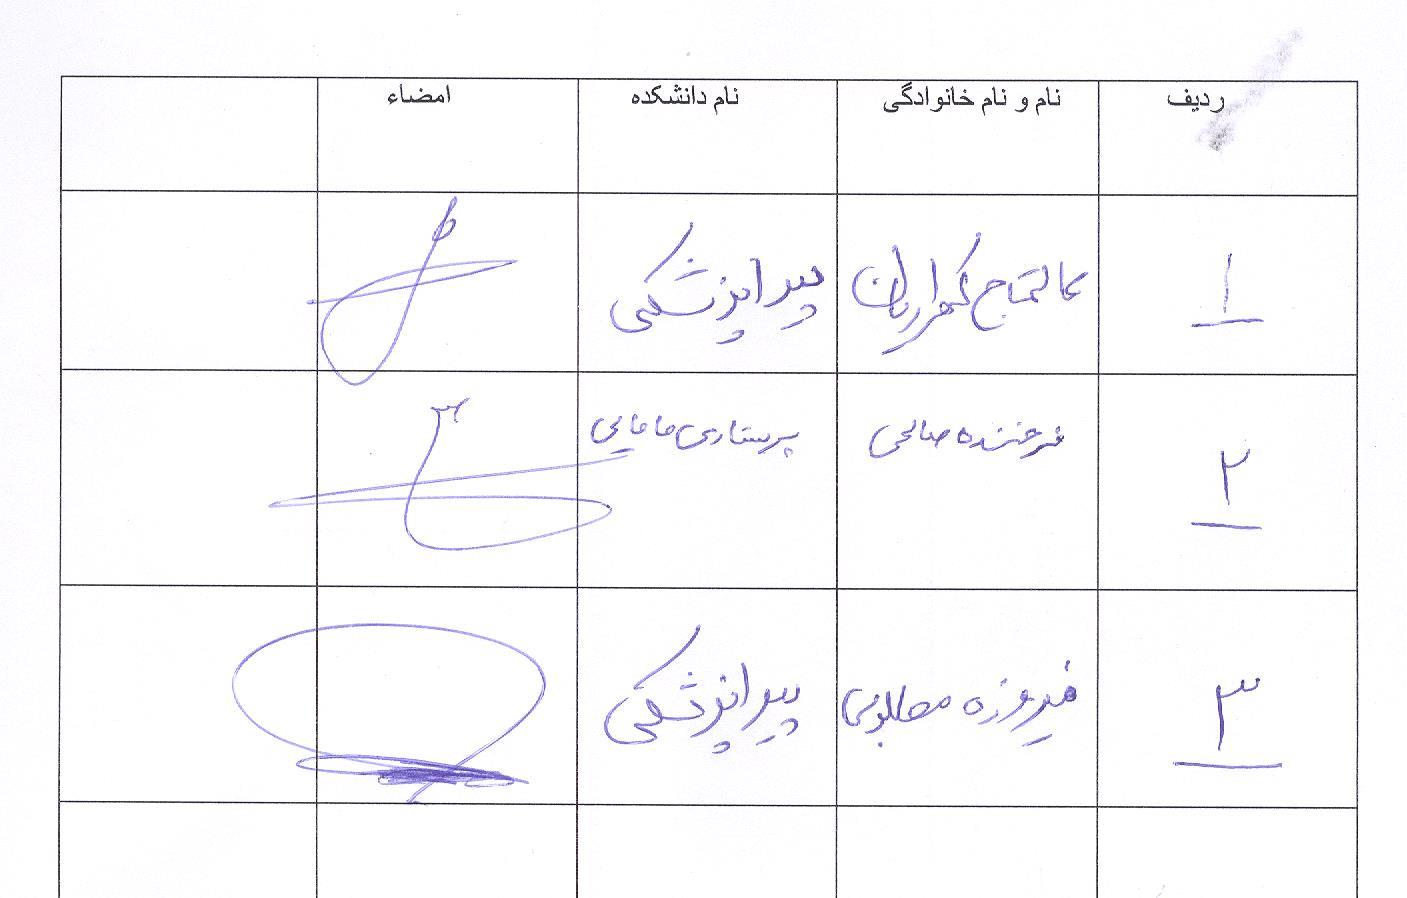 ردیف نام و نام خانوادگی نام دانشکده امضاء
۱ عالمتاج پیراپزشکی
۲ فرخنده صالحی پرستاری مامایی
۳ فیروزه مطلوبی پیراپزشکی